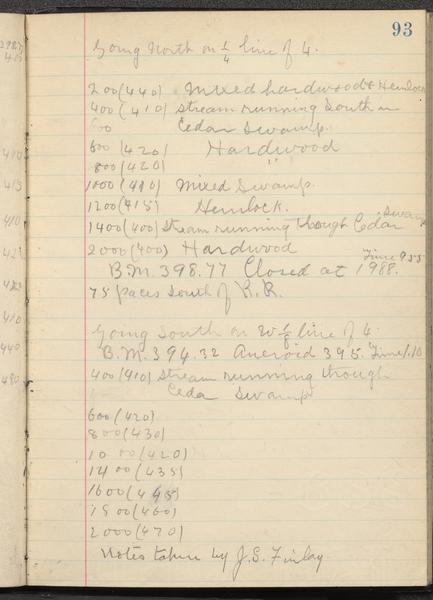 93
Going North on 1/4 line of 4.
200 (440) Mixed hardwood & Hemlock
400 (410) stream running South in
600 Cedar Swamp.
600 (420) Hardwood
800 (420) "
1000 (410) Mixed Swamp.
1200 (415) Hemlock.
1400 (400) stream running through Cedar swamp
2000 (400) Hardwood
B.M. 398.77 Closed at 1988. Time 9 55
75 paces South of R.R.
Going South on W 1/8 line of 4.
B.M. 394.32 Aneroid 395 Time 1.10
400 (410) stream running through
Ceda Swamp
600 (420)
800 (430)
10 00 (420)
1400 (435)
1600 (445)
1800 (460)
2000 (470)
Notes taken by J.S. Finlay.
410
413
410
422
410
440
480